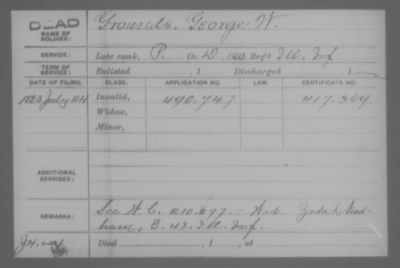 DEAD
Grounds, George W.
NAME OF SOLDIER:
SERVICE: Late rank, P. Co. D, 120 Reg't Ill. Inf.
TERM OF SERVICE: Enlisted , 1 Discharged , 1
DATE OF FILING. CLASS. APPLICATION NO. LAW. CERTIFICATE NO.
1883 July 24 Invalid, 490.747 417.309
Widow,
Minor,
ADDITIONAL SERVICES:
REMARKS: See W. C. 210.697. -
E. 48. Ill. Inf.
Died , 1 , at